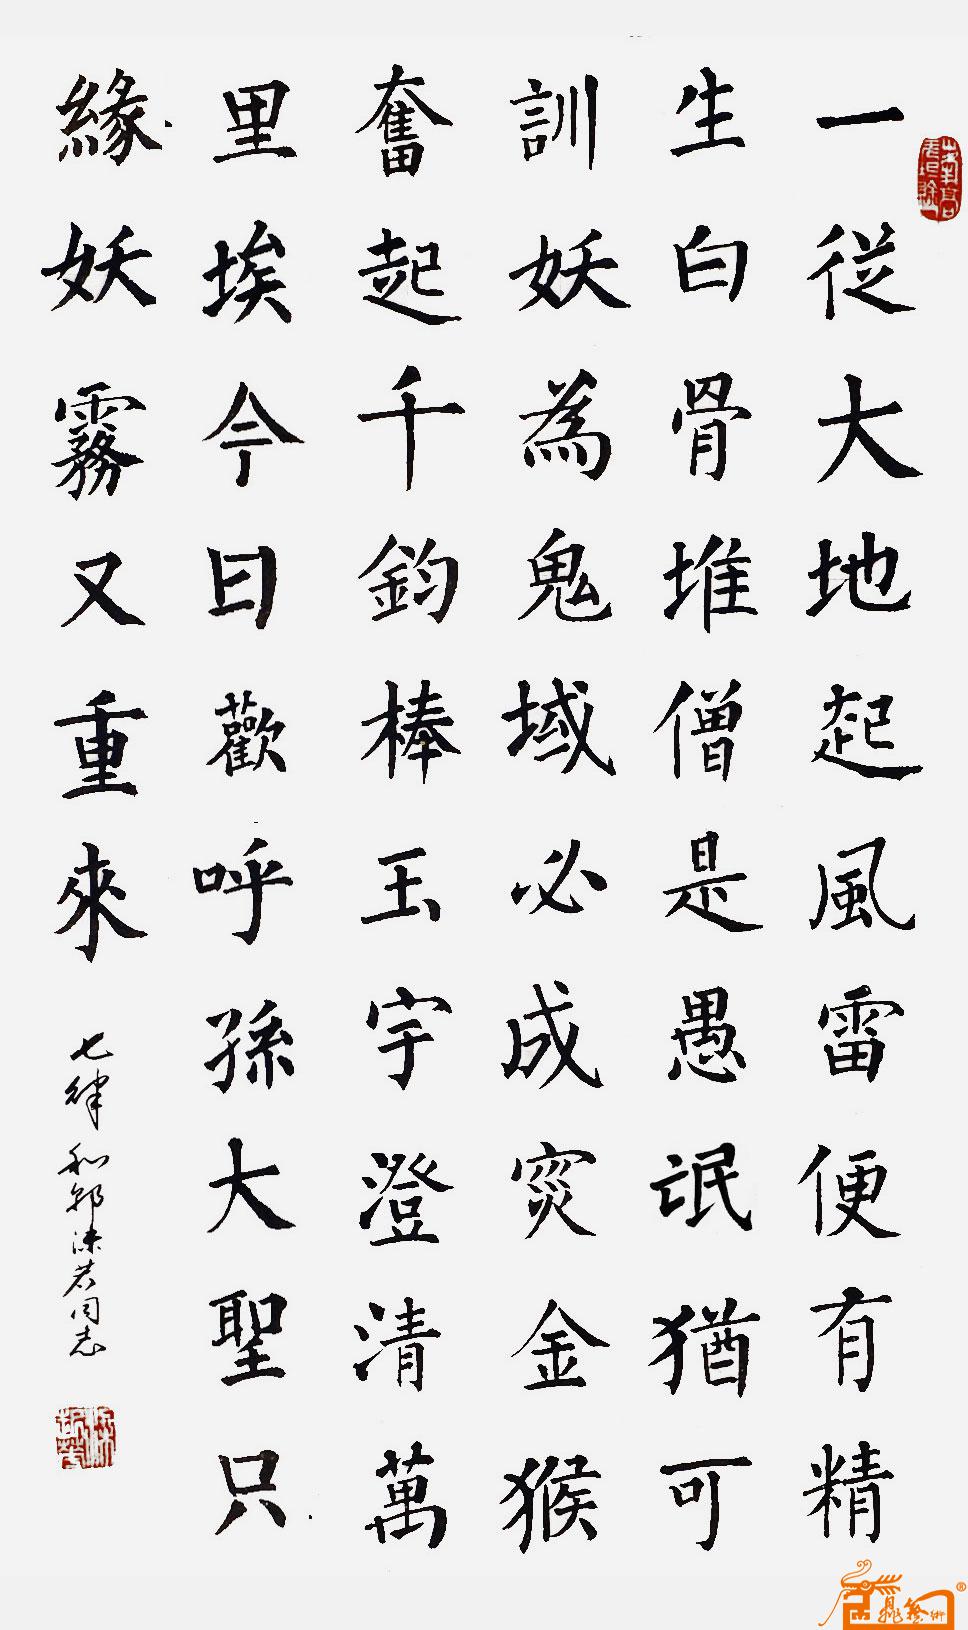 一從大地起風雷便有精
生白骨堆僧是愚氓猶可
訓妖為鬼域必成災金猴
奮起千鈞棒玉宇澄清萬
里埃今日歡呼孫大聖只
緣妖霧又重來
七律和郭沫若同志